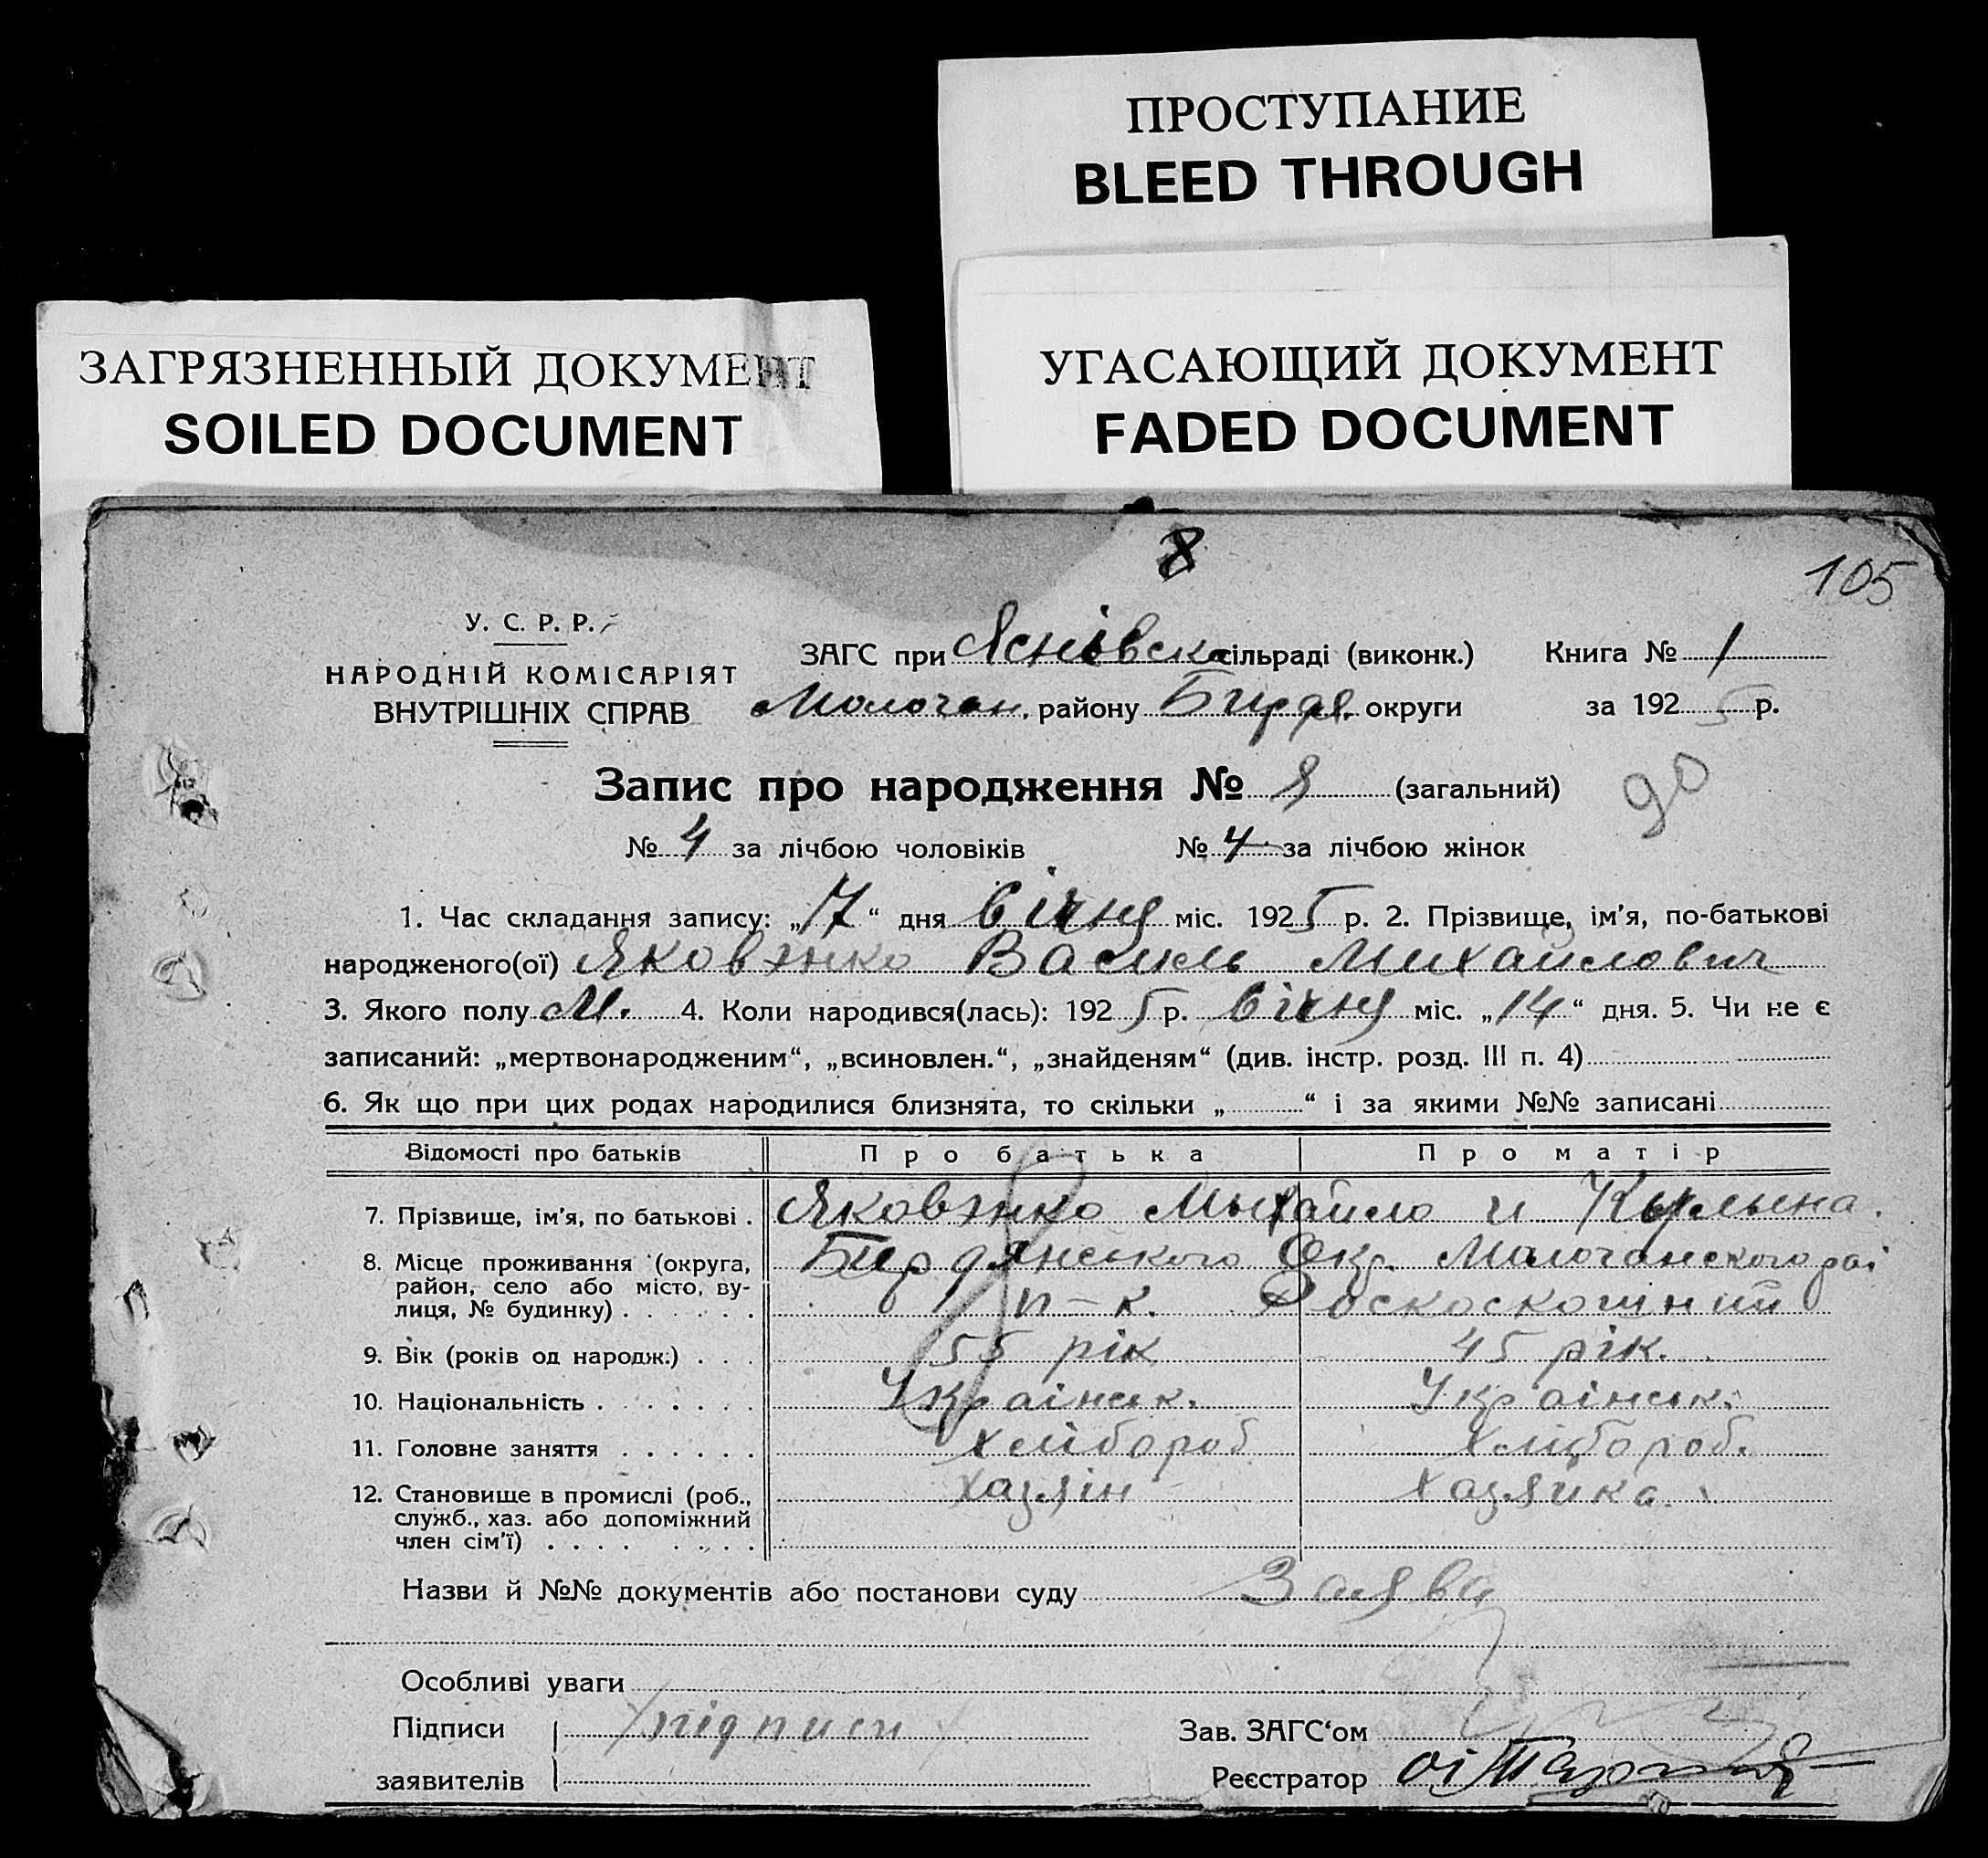 ПРОСТУПАНИЕ
BLEED THROUGH
ЗАГРЯЗНЕННЫЙ ДОКУМЕНТ
SOILED DOCUMENT
УГАСАЮЩИЙ ДОКУМЕНТ
FADED DOCUMENT
8
105
У. С. Р. Р.
НАРОДНІЙ КОМІСАРІЯТ
ВНУТРІШНІХ СПРАВ
ЗАГС при Яснівска сільраді (виконк.) Книга № 1
Молочан. району Бирдя. округи за 192 5 р.
Запис про народження № 8 (загальний)
90
№ 4 за лічбою чоловіків № 4 за лічбою жінок
1. Час складання запису: „17“ дня вічня міс. 1925 р. 2. Прізвище, ім'я, по-батькові
народженого(ої) Яковэнко Василь Михайлович
3. Якого полу М. 4. Коли народився(лась): 192 5 р. вічня міс. „14“ дня. 5. Чи не є
записаний: „мертвонародженим“, „всиновлен.“, „знайденям“ (див. інстр. розд. III п. 4)
6. Як що при цих родах народилися близнята, то скільки „ “ і за якими №№ записані
Відомості про батьків Про батька Про матір
7. Прізвище, ім'я, по батькові . Яковэнко Мыхайло и
8. Місце проживання (округа, район, село або місто, вулиця, № будинку) Бирдянського Окр. Молочанского раі
п-к.
9. Вік (років од народж.) . . . 55 рік 45 рік.
10. Національність . . . . . . . Українськ. Українськ.
11. Головне заняття . . . . . . Хлібороб Хлібороб.
12. Становище в промислі (роб., служб., хаз. або допоміжний член сім'ї) Хазяін Хазяйка.
Назви й №№ документів або постанови суду Заява
Особливі уваги
Підписи заявителів підписи
Зав. ЗАГС'ом
Реєстратор